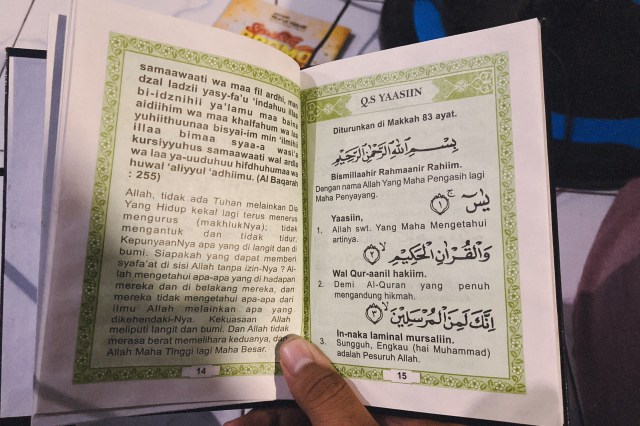 samaawaati wa maa fil ardhi, man
dzal ladzii yasy-fa'u 'indahuu illaa
bi-idznihii ya'lamu maa baina
aidiihim wa maa khalfahum wa laa
yuhiithuunaa bisyai-im min 'ilmihii
illaa bimaa syaa-a wasi'a
kursiyyuhus samaawaati wal arda
wa laa ya-uuduhuu hifdhuhumaa wa
huwal 'aliyyul 'adhiimu. (Al Baqarah
: 255)
Allah, tidak ada Tuhan melainkan Dia
Yang Hidup kekal lagi terus menerus
mengurus (makhlukNya); tidak
mengantuk dan tidak tidur.
KepunyaanNya apa yang di langit dan di
bumi. Siapakah yang dapat memberi
syafa'at di sisi Allah tanpa izin-Nya ? Al-
lah mengetahui apa-apa yang di hadapan
mereka dan di belakang mereka, dan
mereka tidak mengetahui apa-apa dari
ilmu Allah melainkan apa yang
dikehendaki-Nya. Kekuasaan Allah
meliputi langit dan bumi. Dan Allah tidak
merasa berat memelihara keduanya, dan
Allah Maha Tinggi lagi Maha Besar.
14
Q.S YAASIIN
Diturunkan di Makkah 83 ayat.
بِسْمِ اللهِ الرَّحْمٰنِ الرَّحِيْمِ
Bismillaahir Rahmaanir Rahiim.
Dengan nama Allah Yang Maha Pengasih lagi
Maha Penyayang.
يٰسۤ ۚ ﴿١﴾
Yaasiin,
1. Allah swt. Yang Maha Mengetahui
artinya.
وَالْقُرْاٰنِ الْحَكِيْمِ ۙ ﴿٢﴾
Wal Qur-aanil hakiim.
2. Demi Al-Quran yang penuh
mengandung hikmah.
اِنَّكَ لَمِنَ الْمُرْسَلِيْنَ ۙ ﴿٣﴾
In-naka laminal mursaliin.
3. Sungguh, Engkau (hai Muhammad)
adalah Pesuruh Allah.
15